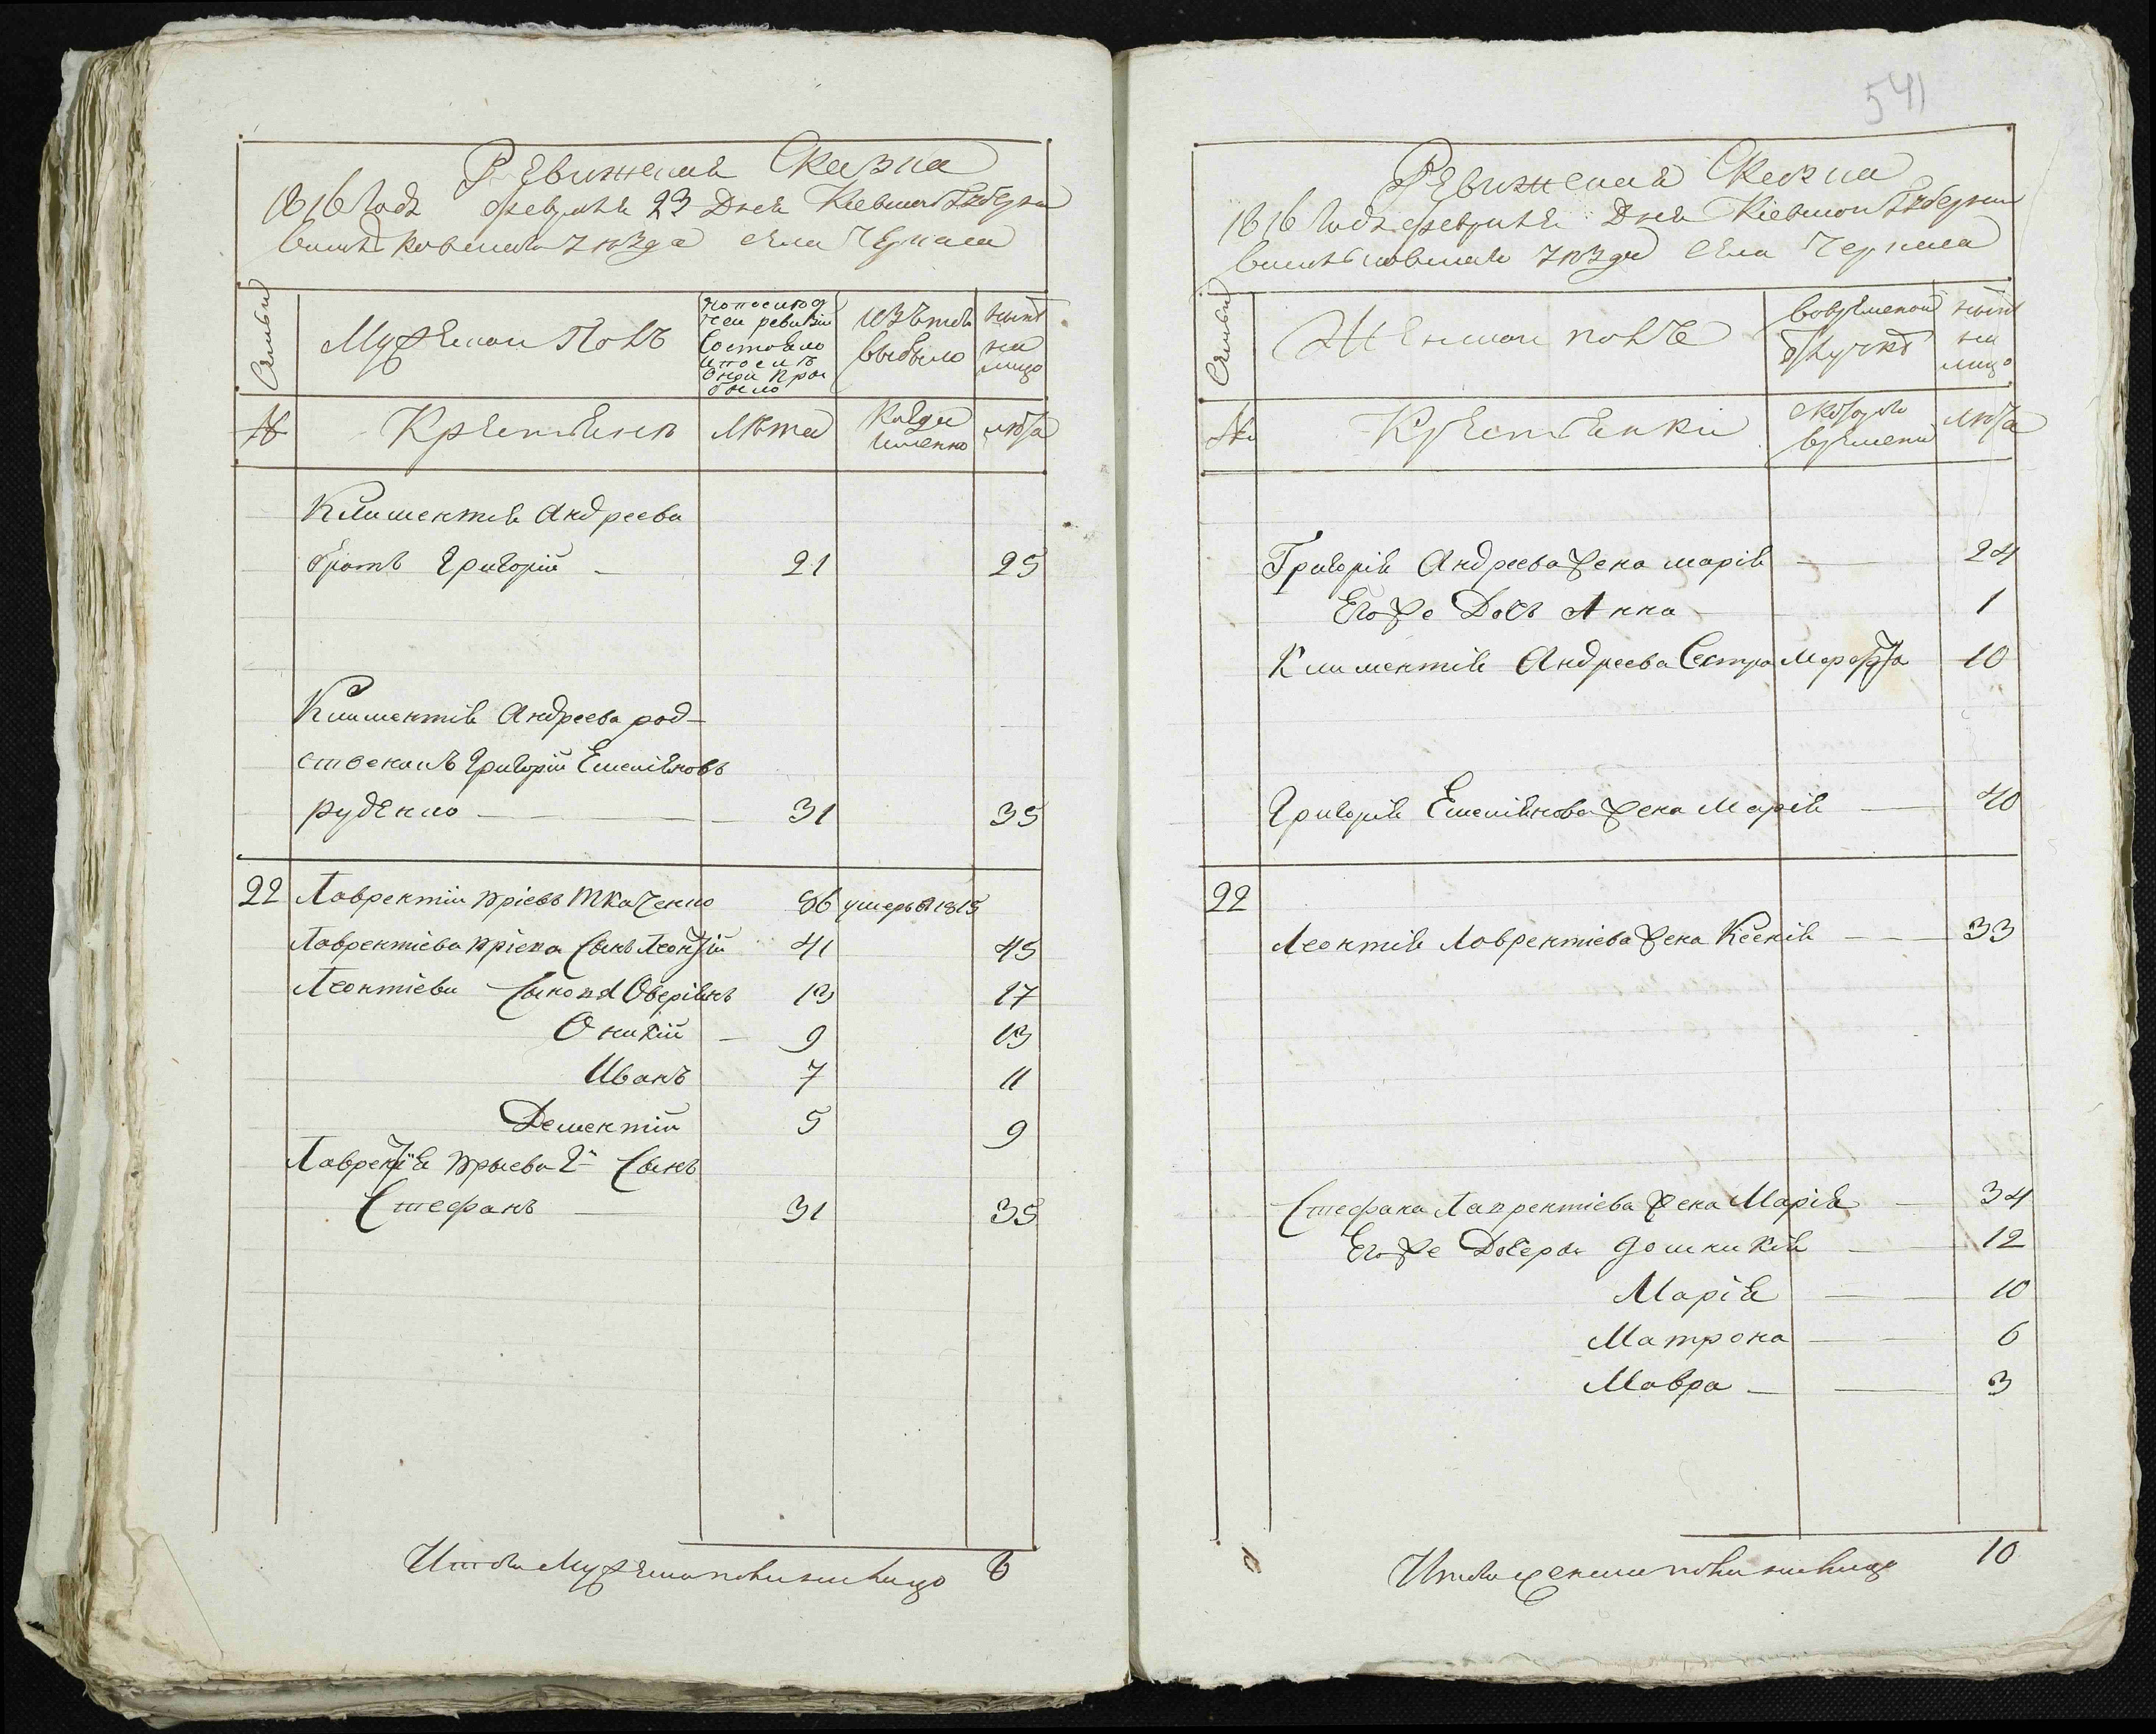 541
Ревижская Сказка
1816 Года февраля 23 Дня Киевской Губернии
Васильковскаго уезда села Черкаса
Семьи
Мужеской Полъ
по последней ревизіи состояло и после оной прибыло
изъ того выбыло
ныне на лицо
№
Крестьянъ
Лета
Когда именно
лета
Климентія Андреева
братъ Григорій 21 25
Климентія Андреева род-
ственикъ Григорій Емеліяновъ
руденко 31 35
22 Лаврентій Юріевъ Ткаченко 86 умеръ в 1815
Лаврентіева Юріева Сынъ Леонтій 41 45
Леонтіева Сыновя Оверіянъ 13 17
Оникій 9 13
Иванъ 7 11
Дементій 5 9
Лаврентія Юрьева 2й Сынъ
Стефанъ 31 35
Итого Мужеска пола на лицо 8
Ревижская Сказка
1816 Года февраля Дня Киевской Губернии
Васильковскаго уезда села Черкаса
Семьи
Женской полъ
во временной отлучке
ныне на лицо
№
Крестьянки
с которого времени
Лета
Григорія Андреева жена марія 24
Его же Дочь Анна 1
Климентія Андреева Сестра Марфа 10
Григорія Емеліянова жена Марія 40
22
Леонтія Лаврентіева жена Ксенія 33
Стефана Лаврентіева жена Марія 34
Его же Дочери домникія 12
Марія 10
Матрона 6
Мавра 3
Итого женска пола на лицо 10